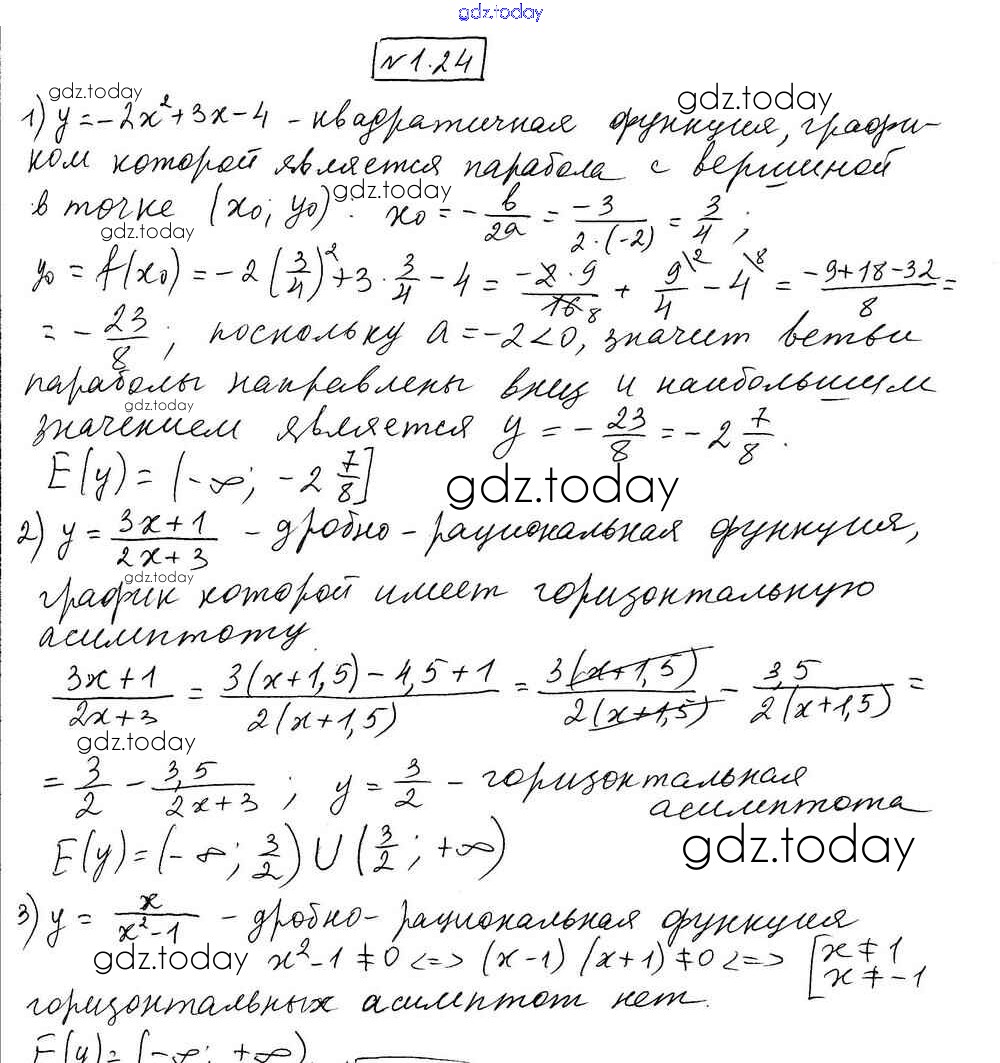 gdz.today
№1.24
gdz.today gdz.today
1) y = -2x² + 3x - 4 - квадратичная функция, графи-
ком которой является парабола с вершиной
gdz.today
в точке (x₀; y₀). x₀ = -b/2a = -3/(2·(-2)) = 3/4;
gdz.today
y₀ = f(x₀) = -2(3/4)² + 3·3/4 - 4 = -2·9/16 8 + 9/4 \2 - 4 \8 = (-9+18-32)/8 =
= -23/8; поскольку a = -2 < 0, значит ветви
параболы направлены вниз и наибольшим
gdz.today
значением является y = -23/8 = -2 7/8.
E(y) = (-∞; -2 7/8]
gdz.today
2) y = (3x+1)/(2x+3) - дробно-рациональная функция,
gdz.today
график которой имеет горизонтальную
асимптоту
(3x+1)/(2x+3) = (3(x+1,5)-4,5+1)/(2(x+1,5)) = 3(x+1,5)/(2(x+1,5)) - 3,5/(2(x+1,5)) =
gdz.today
= 3/2 - 3,5/(2x+3); y = 3/2 - горизонтальная
асимптота
E(y) = (-∞; 3/2) ∪ (3/2; +∞)
gdz.today
3) y = x/(x²-1) - дробно-рациональная функция
gdz.today
x²-1 ≠ 0 <=> (x-1)(x+1) ≠ 0 <=> [x ≠ 1
x ≠ -1
горизонтальных асимптот нет.
E(y) = (-∞; +∞)